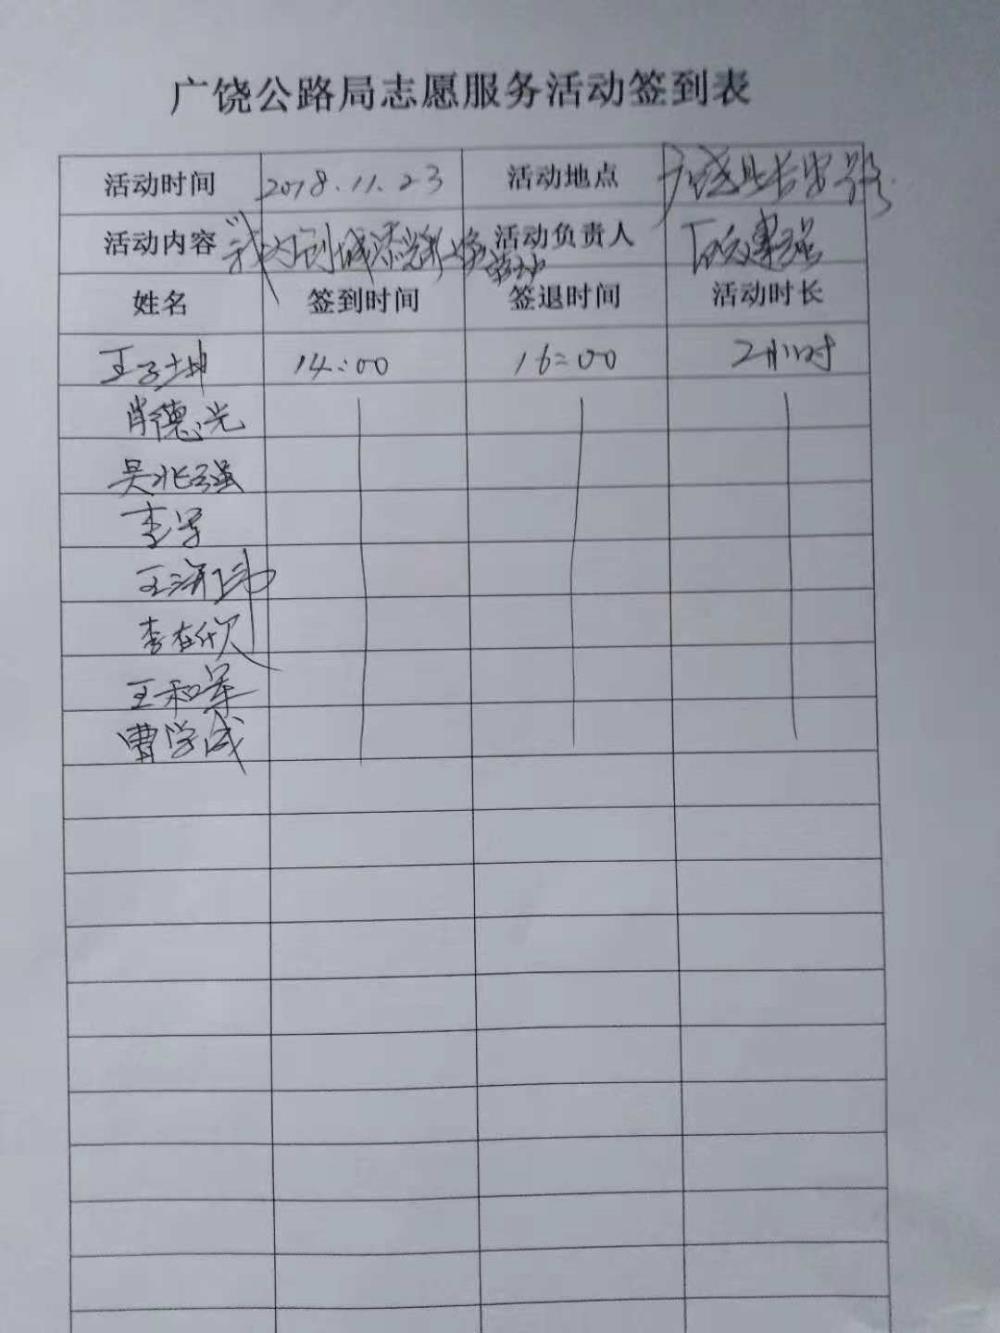 广饶公路局志愿服务活动签到表
活动时间 2018.11.23 活动地点 广饶县长安路
活动内容 "我为创城添光彩" 活动负责人
姓名 签到时间 签退时间 活动时长
王子坤 14:00 16:00 2小时
肖德光
吴兆强
李军
王海坤
李春欣
王和军
曹学成